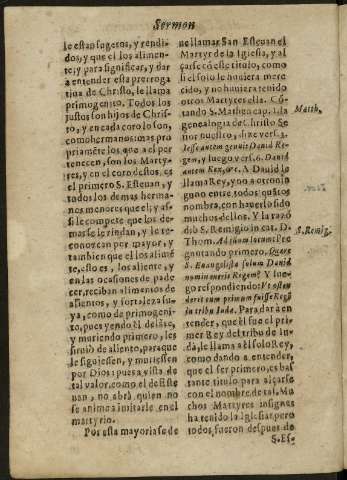 Sermon
le estan sugetos, y rendi-
dos, y que el los alimen-
te; y para significar, y dar
a entender esta prerroga
tiua de Christo, le llama
primogenito. Todos los
justos son hijos de Chris-
to, y en cada coro lo son,
como hermanos mas pro
priamẽte los que a el per
tenecen, son los Marty-
res, y en el coro destos, es
el primero S. Esteuan, y
todos los demas herma-
nos menores que el; y as-
si le compete que los de-
mas se le rindan, y le re-
conozcan por mayor, y
tambien que el los alimẽ
te, esto es, los aliente, y
en las ocasiones de pade
cer, reciban alimentos de
alientos, y fortaleza su-
ya, como de primogeni-
to, pues yendo èl delãte,
y muriendo primero, les
siruiò de aliento, para que
le siguiessen, y muriessen
por Dios; puesa vista de
tal valor, como el de Este
uan, no abrà quien no
se anime a imitarle en el
martyrio.
Por esta mayoria se de
ue llamar San Esteuan el
Martyr de la Iglesia, y al
çarse cõ este titulo, como
si el solo le huuiera mere
cido, y no huuiera tenido
otros Martyres ella. Cõ-
tando S. Matheo cap. 1. la
genealogia de Christo Se
ñor nuestro, dize vers. 5.
Iesse autem genuit Dauid Re-
gem, y luego vers. 6. Dauid
autem Rex, &c. A Dauid le
llama Rey, y no a otro nin
guno entre todos aquestos
nombra, con hauerlo sido
muchos dellos. Y la razõ
diò S. Remigio in cat. D.
Thom. Ad inum locum: Pre
guntando primero, Quare
S. Euangelista solum Dauid
nominauerit Regem? Y lue-
go respondiendo: Vt osten
derit eum primum fuisse Regẽ
in tribu Iuda. Para dar a en
tender, que èl fue el pri-
mer Rey del tribu de Iu-
dà, le llama a èl solo Rey,
como dando a entender,
que el ser primero, es bas
tante titulo para alçarse
con el nombre de tal. Mu
chos Martyres insignes
ha tenido la Iglesia; pero
todos, fueron despues de
S. Es-
Matth.
S. Remig.